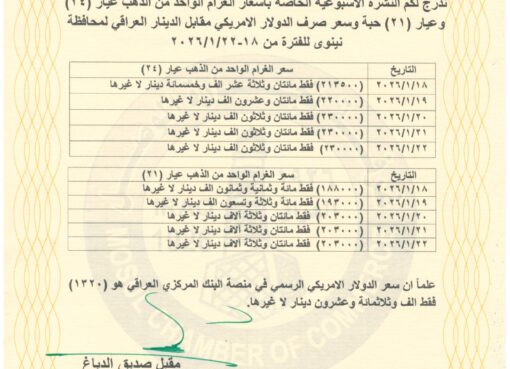 ندرج لكم النشرة الاسبوعية الخاصة باسعار الغرام الواحد من الذهب عيار (٢٤)
وعيار (٢١) حبة وسعر صرف الدولار الامريكي مقابل الدينار العراقي لمحافظة
نينوى للفترة من ١٨-٢٠٢٦/١/٢٢
التاريخ سعر الغرام الواحد من الذهب عيار (٢٤)
٢٠٢٦/١/١٨ (٢١٣٥٠٠) فقط مائتان وثلاثة عشر الف وخمسمائة دينار لا غيرها
٢٠٢٦/١/١٩ (٢٢٠٠٠٠) فقط مائتان وعشرون الف دينار لا غيرها
٢٠٢٦/١/٢٠ (٢٣٠٠٠٠) فقط مائتان وثلاثون الف دينار لا غيرها
٢٠٢٦/١/٢١ (٢٣٠٠٠٠) فقط مائتان وثلاثون الف دينار لا غيرها
٢٠٢٦/١/٢٢ (٢٣٠٠٠٠) فقط مائتان وثلاثون الف دينار لا غيرها
التاريخ سعر الغرام الواحد من الذهب عيار (٢١)
٢٠٢٦/١/١٨ (١٨٨٠٠٠) فقط مائة وثمانية وثمانون الف دينار لا غيرها
٢٠٢٦/١/١٩ (١٩٣٠٠٠) فقط مائة وثلاثة وتسعون الف دينار لا غيرها
٢٠٢٦/١/٢٠ (٢٠٣٠٠٠) فقط مائتان وثلاثة آلاف دينار لا غيرها
٢٠٢٦/١/٢١ (٢٠٣٠٠٠) فقط مائتان وثلاثة آلاف دينار لا غيرها
٢٠٢٦/١/٢٢ (٢٠٣٠٠٠) فقط مائتان وثلاثة آلاف دينار لا غيرها
علماً ان سعر الدولار الامريكي الرسمي في منصة البنك المركزي العراقي هو (١٣٢٠)
فقط الف وثلاثمائة وعشرون دينار لا غيرها.
مقبل صديق الدباغ